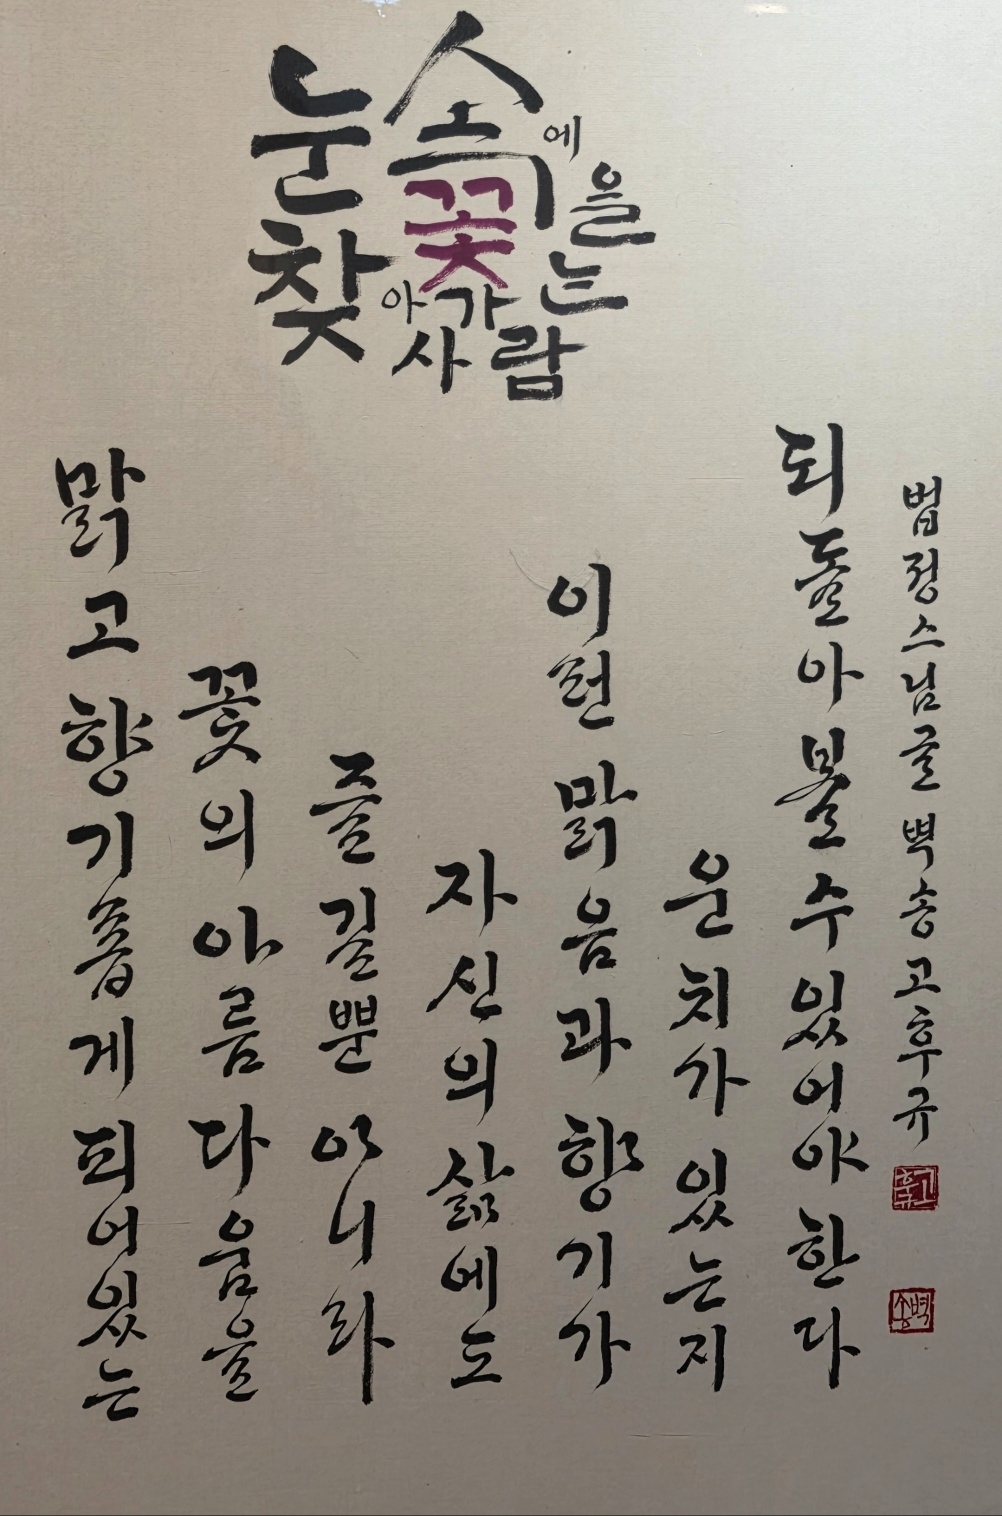 눈 속에
꽃을
찾아가는
사람
맑고 향기롭게 피어있는
꽃의 아름다움을
즐길뿐 아니라
자신의 삶에도
이런 맑음과 향기가
운치가 있는지
되돌아 볼 수 있어야 한다
법정스님글 벽송 고후규